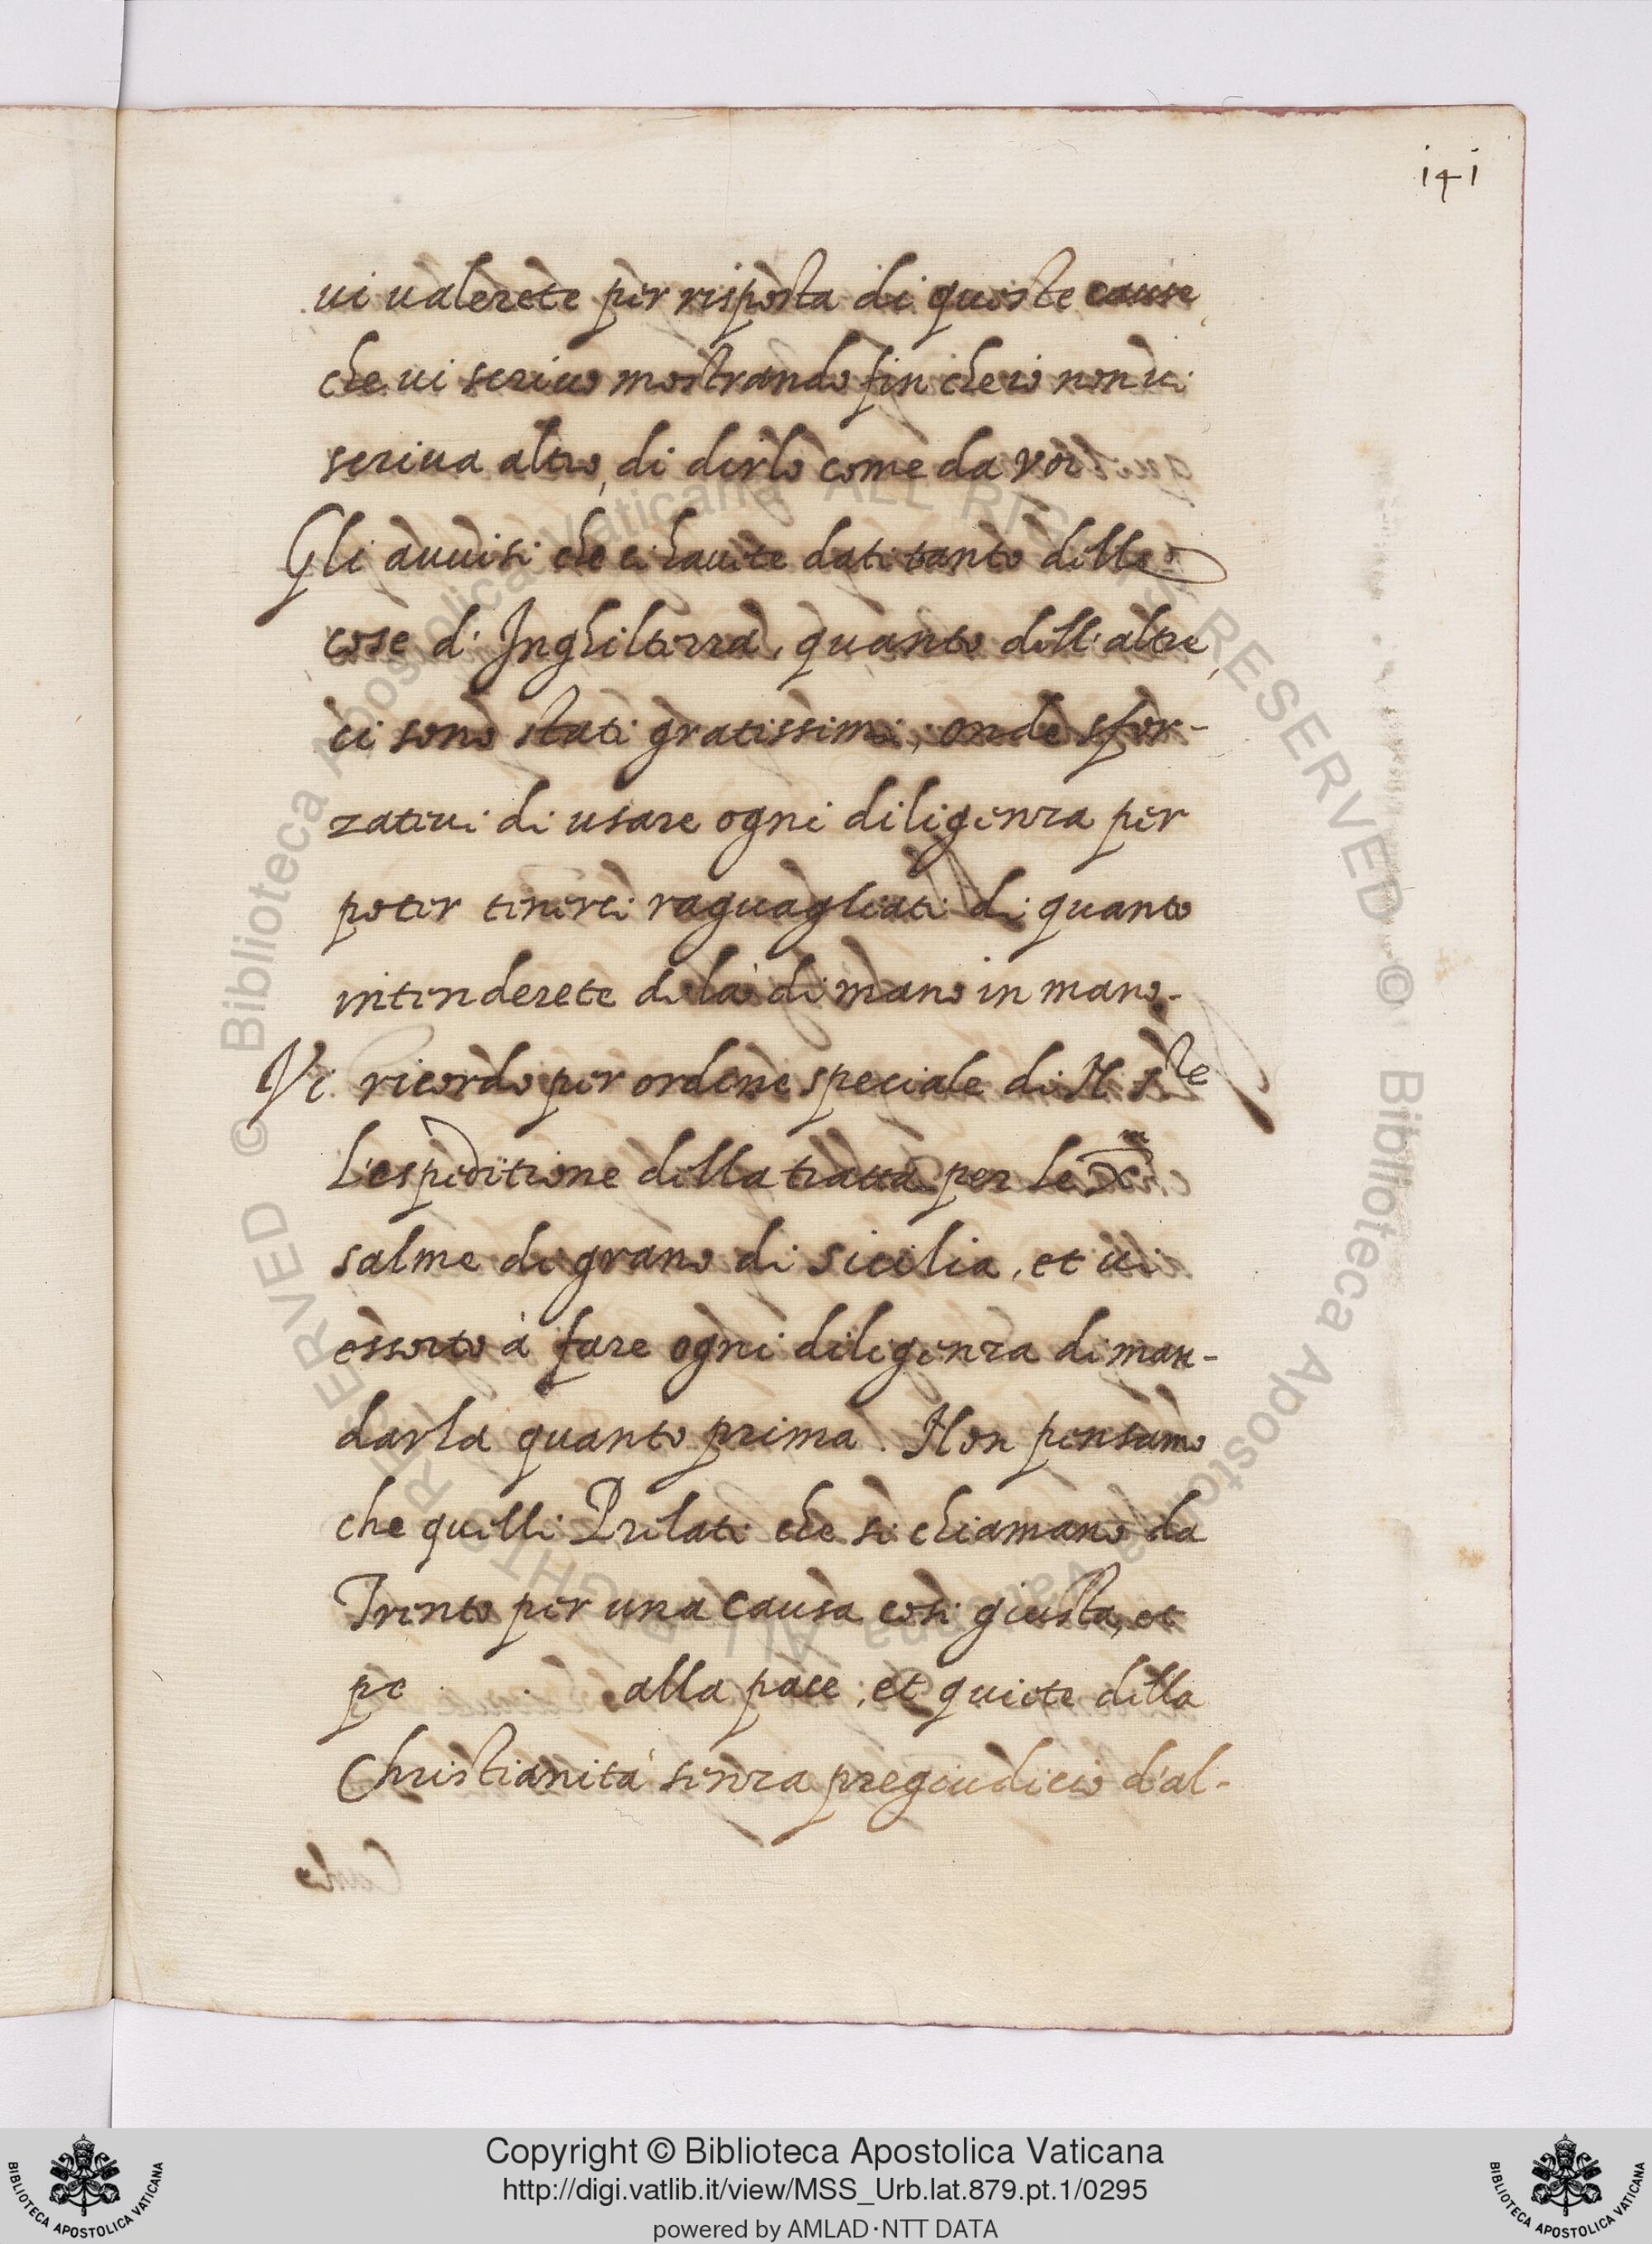 141
vi valerete per risposta di queste cause
che vi scrivo mostrando fin che io non vi
scriva altro, di dirlo come da voi
Gli avvisi che ci havete dati tanto delle
cose d'Inghilterra, quanto dell'altre
ci sono stati gratissimi, onde sfor-
zatevi di usare ogni diligenza per
poter tenerci raguagliati di quanto
intenderete di là di mano in mano.
Vi ricordo per ordine speciale di N. S.re
L'espeditione della tratta per le X.m
salme di grano di Sicilia, et vi
essorto à fare ogni diligenza di man-
darla quanto prima. Non pensamo
che quelli Prelati che si chiamano da
Trento per una causa così giusta, et
pe . . alla pace, et quiete della
Christianità senza pregiudicio d'al-
© Biblioteca Apostolica Vaticana ALL RIGHTS RESERVED © Biblioteca Apostolica Vaticana ALL RIGHTS RESERVED
Copyright © Biblioteca Apostolica Vaticana
http://digi.vatlib.it/view/MSS_Urb.lat.879.pt.1/0295
powered by AMLAD·NTT DATA
BIBLIOTECA APOSTOLICA VATICANA
BIBLIOTECA APOSTOLICA VATICANA